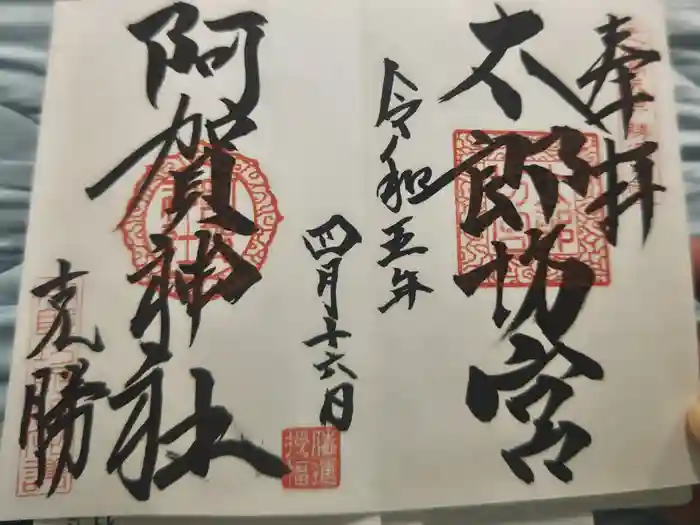 奉拝
太郎坊宮
令和五年
四月十六日
阿賀神社
克勝